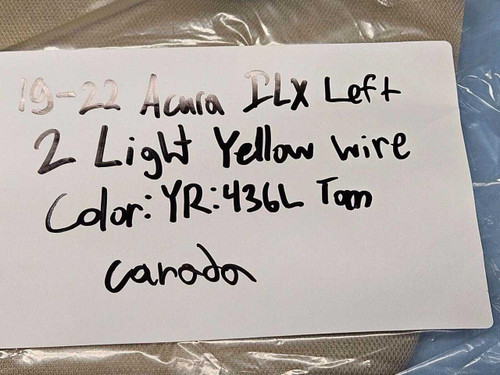 19-22 Acura ILX Left
2 Light Yellow wire
Color: YR:436L Tam
Canada